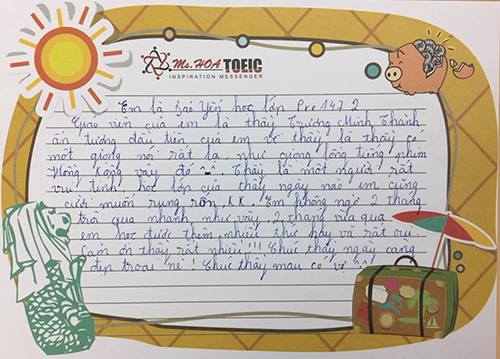 Ms. HOA TOEIC
INSPIRATION MESSENGER
Em là Hải Yến học lớp Pre 147 2
Giáo viên của em là thầy Trương Minh Thành
ấn tượng đầu tiên của em về thầy là thầy có
một giọng nói rất lạ, như giọng lồng tiếng phim
Hồng Kông vậy đó. Thầy là một người rất
vui tính, học lớp của thầy ngày nào em cũng
cười muốn rụng rốn, KK. Em không ngờ 2 tháng
trôi qua nhanh như vậy, 2 tháng vừa qua
em học được thêm nhiều thứ hay và rất vui
Cảm ơn thầy rất nhiều!!! Chúc thầy ngày càng
đẹp trai nè! Chúc thầy mau có vợ